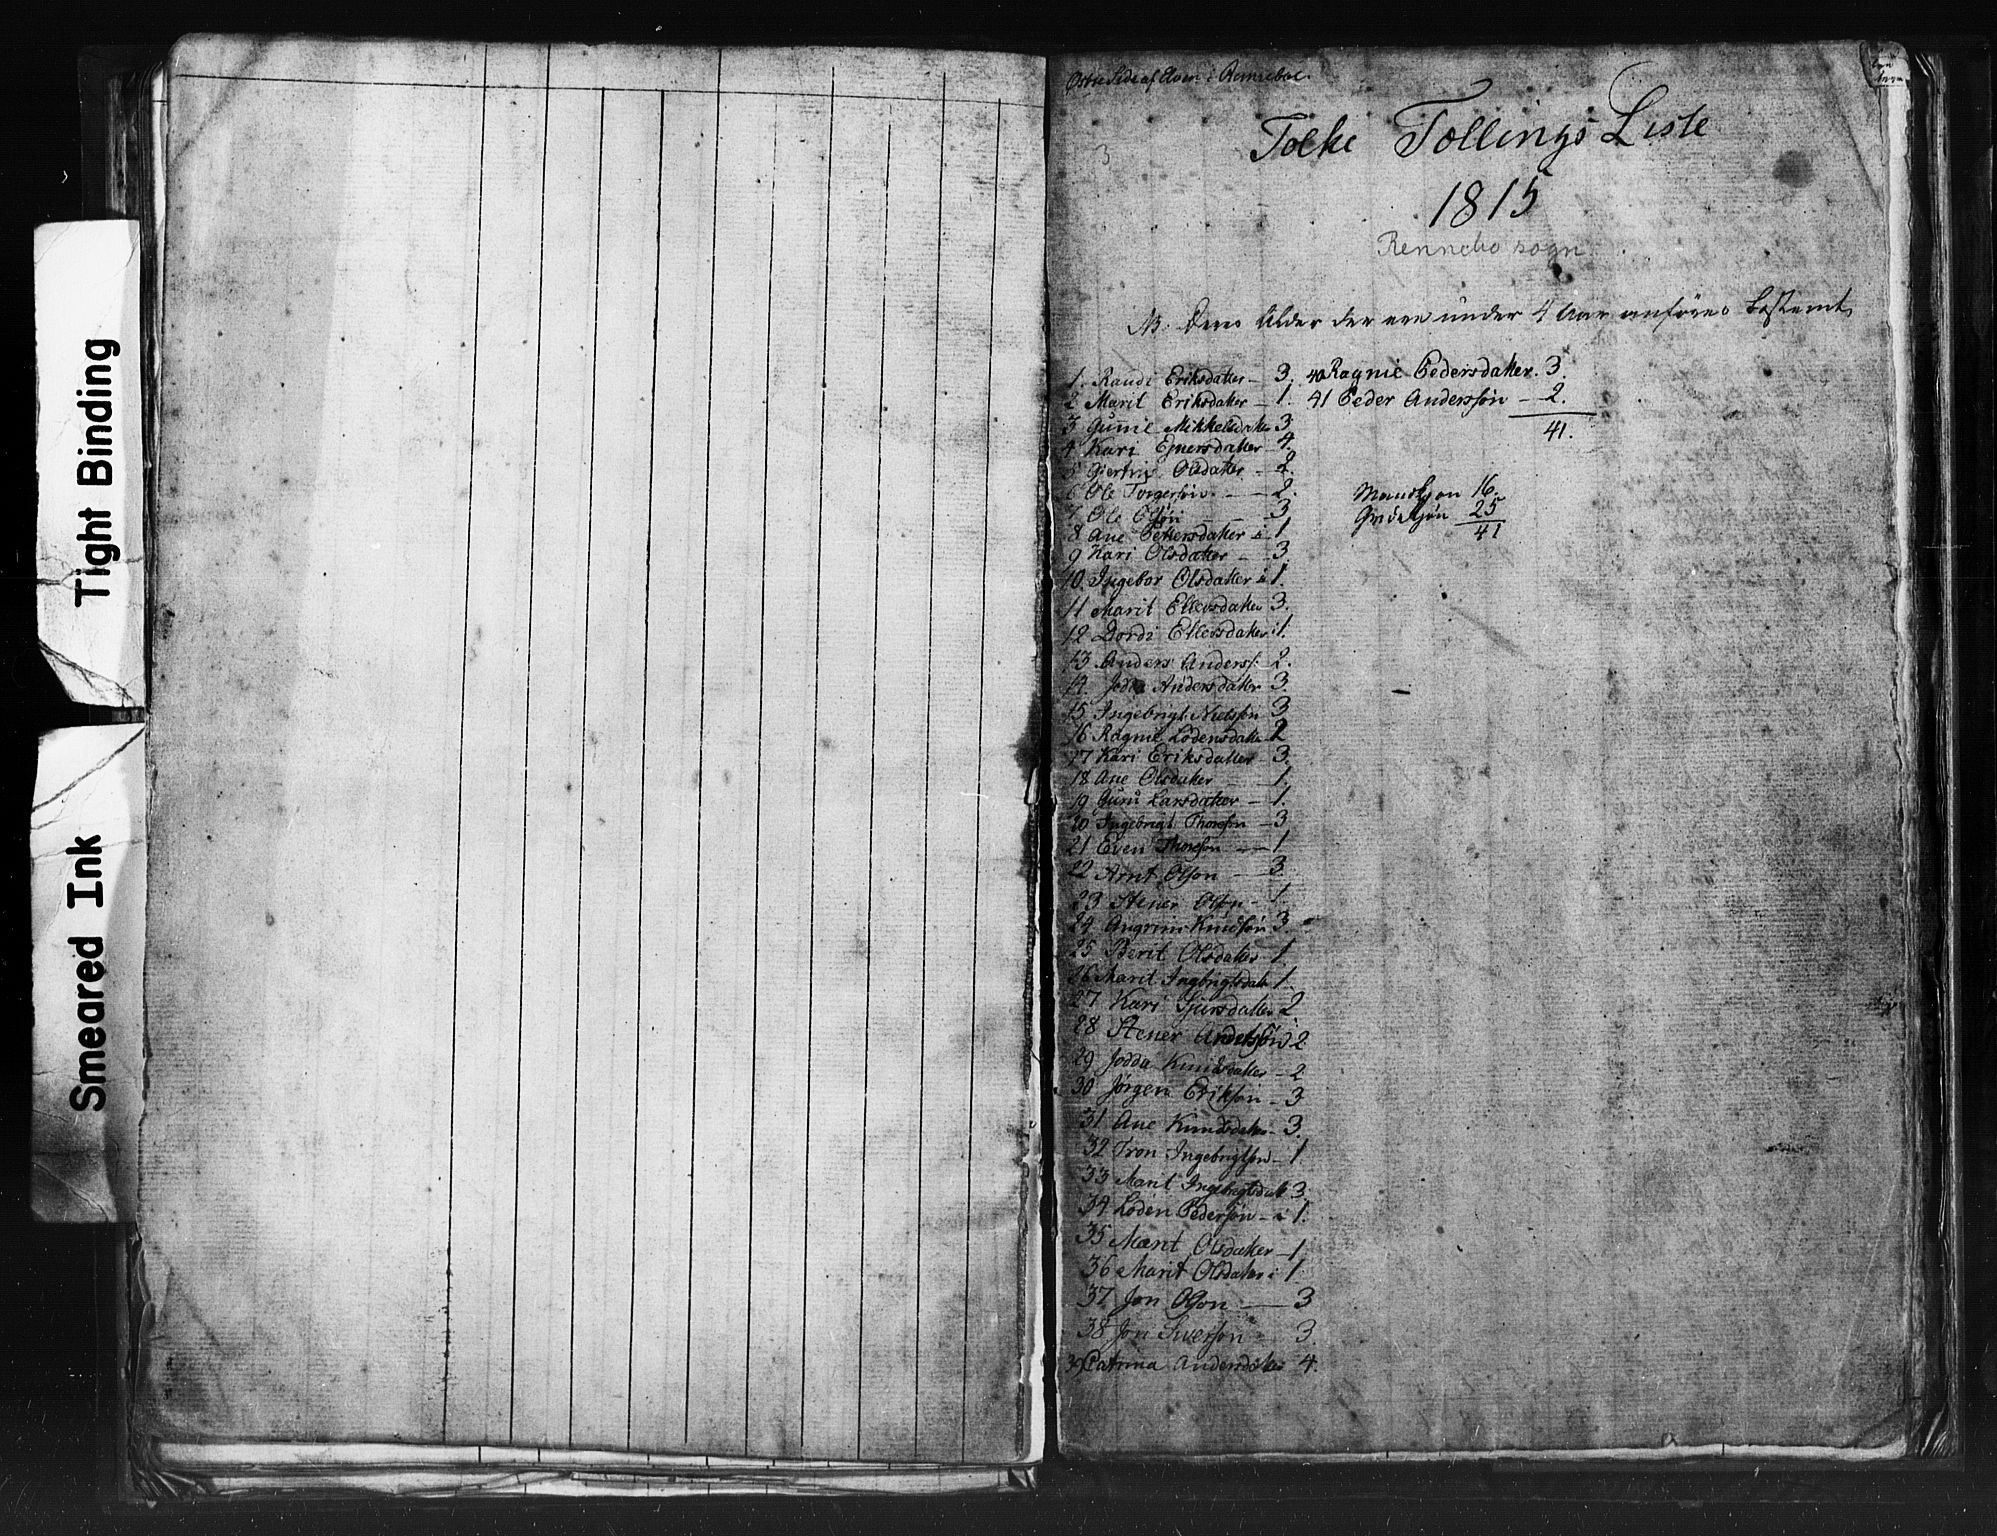 Tight Binding
Smeared Ink
Østre Side af Elven i Renneboe.
3
Folke Tællings Liste
1815
Rennebo sogn
NB. Dens Alder der ere under 4 Aar anføres bestemt
1. Randi Eriksdatter - 3.
2 Marit Eriksdatter - 1.
3 Mikkelsdatter 3
4 Kari Ejnersdatter 4
5 Olsdatter - 2.
6 Ole Torgersøn - - 2.
7 Ole Olsøn 3
8 Ane Pettersdatter 1
9 Kari Olsdatter - 3.
10. Ingebor Olsdatter 1.
11 Marit Ellevsdatter 3.
12 Dordi Ellevsdatter 1.
13 Anders Anders. - 2.
14. Jødda Andersdatter 3.
15 Ingebrigt Nielsøn 3
16 Ragnie Lodensdatter 2
17 Kari Eriksdatter - 3.
18 Ane Olsdatter - 1.
19 Guru Larsdatter - 1.
20 Ingebrigt Thoresøn - 3
21 Even Thoresøn - 1
22 Arnt Olsøn - 3.
23 Stener Olsøn - 1.
24 Angrim Knudsøn 3.
25 Berit Olsdatter - 1.
26 Marit Ingebrigtsdatt 1.
27 Kari Sjursdatter 2.
28 Stener Andersøn 2
29 Jødda Knudsdatter - 2
30 Jørgen Eriksøn - 3
31 Ane Knudsdatter - 3.
32 Tron Ingebrigtsøn - 1
33 Marit Ingebrigtsdatt 3.
34 Loden Pedersøn - 1.
35 Marit Olsdatter - 1
36 Marit Olsdatter 1
37 Jon Olsøn - 3
38 Jon Siversøn - 3.
39 Andersdatter 4.
40 Ragnie Pedersdatter. 3.
41 Peder Andersøn - 2.
41.
Mandkjøn 16.
Qvindkjøn 25
41